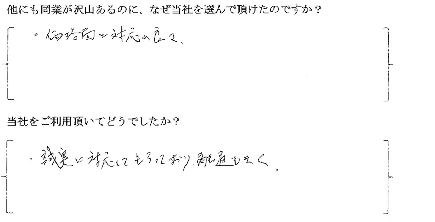 他にも同業が沢山あるのに、なぜ当社を選んで頂けたのですか？
・価格面と対応の良さ、
当社をご利用頂いてどうでしたか？
・誠実に対応してもらっており、